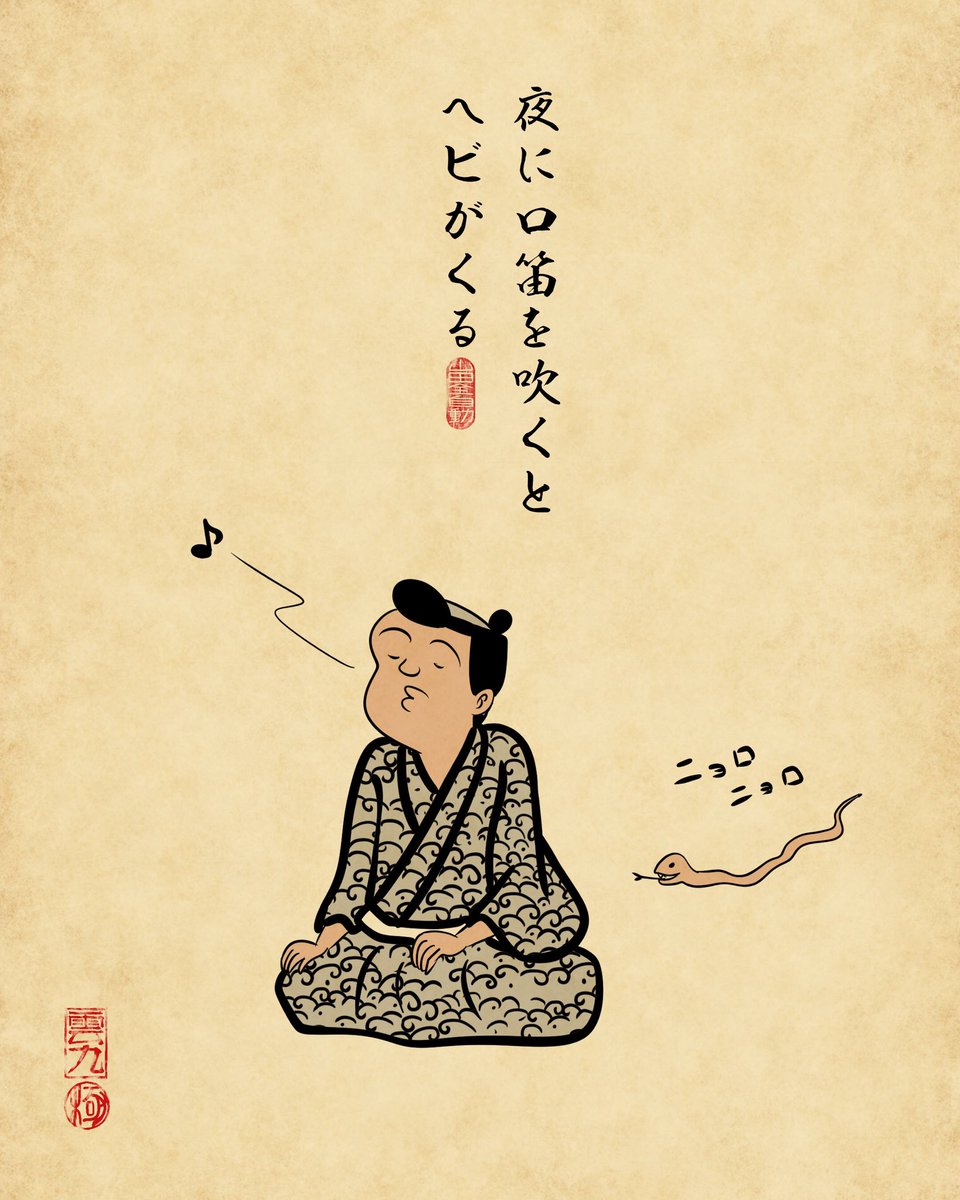 夜に口笛を吹くと
ヘビがくる
ニョロ
ニョロ